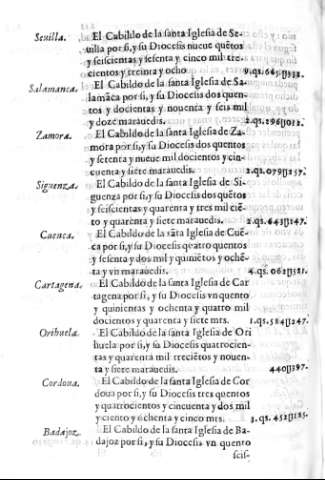 Seuilla. El Cabildo de la santa Iglesia de Se-
uilla por si, y su Diocesis nueue quẽtos
y seiscientas y sesenta y cinco mil tre-
cientos y treinta y ocho 9.qs.665ų338.
Salamanca. El Cabildo de la santa Iglesia de Sa-
lamãca por si, y su Diocesis dos quen-
tos y docientas y nouenta y seis mil
y doze marauedis. 2.qs.296ų012.
Zamora. El Cabildo de la santa Iglesia de Za-
mora por si, y su Diocesis dos quentos
y setenta y nueue mil docientos y cin-
cuenta y siete marauedis. 2.qs.079ų257.
Siguenza. El Cabildo de la santa Iglesia de Si-
guenza por si, y su Diocesis dos quẽtos
y seiscientas y quarenta y tres mil ciẽ-
to y quarenta y siete marauedis. 2.qs.643ų147.
Cuenca. El Cabildo de la sãta Iglesia de Cuẽ-
ca por si, y su Diocesis quatro quentos
y sesenta y dos mil y quiniẽtos y ochẽ-
ta y vn marauedis. 4.qs.062ų581.
Cartagena. El Cabildo de la santa Iglesia de Car
tagena por si, y su Diocesis vn quento
y quinientas y ochenta y quatro mil
docientos y quarenta y siete mrs. 1.qs.584ų247.
Orihuela. El Cabildo de la santa Iglesia de Ori
huela por si, y su Diocesis quatrocien-
tas y quarenta mil treciẽtos y nouen-
ta y siete marauedis. 440ų397.
Cordoua. El Cabildo de la santa Iglesia de Cor
doua por si, y su Diocesis tres quentos
y quatrocientos y cincuenta y dos mil
y ciento y ochenta y cinco mrs. 3.qs.452ų185.
Badajoz. El Cabildo de la santa Iglesia de Ba-
dajoz por si, y su Diocesis vn quento
seis-